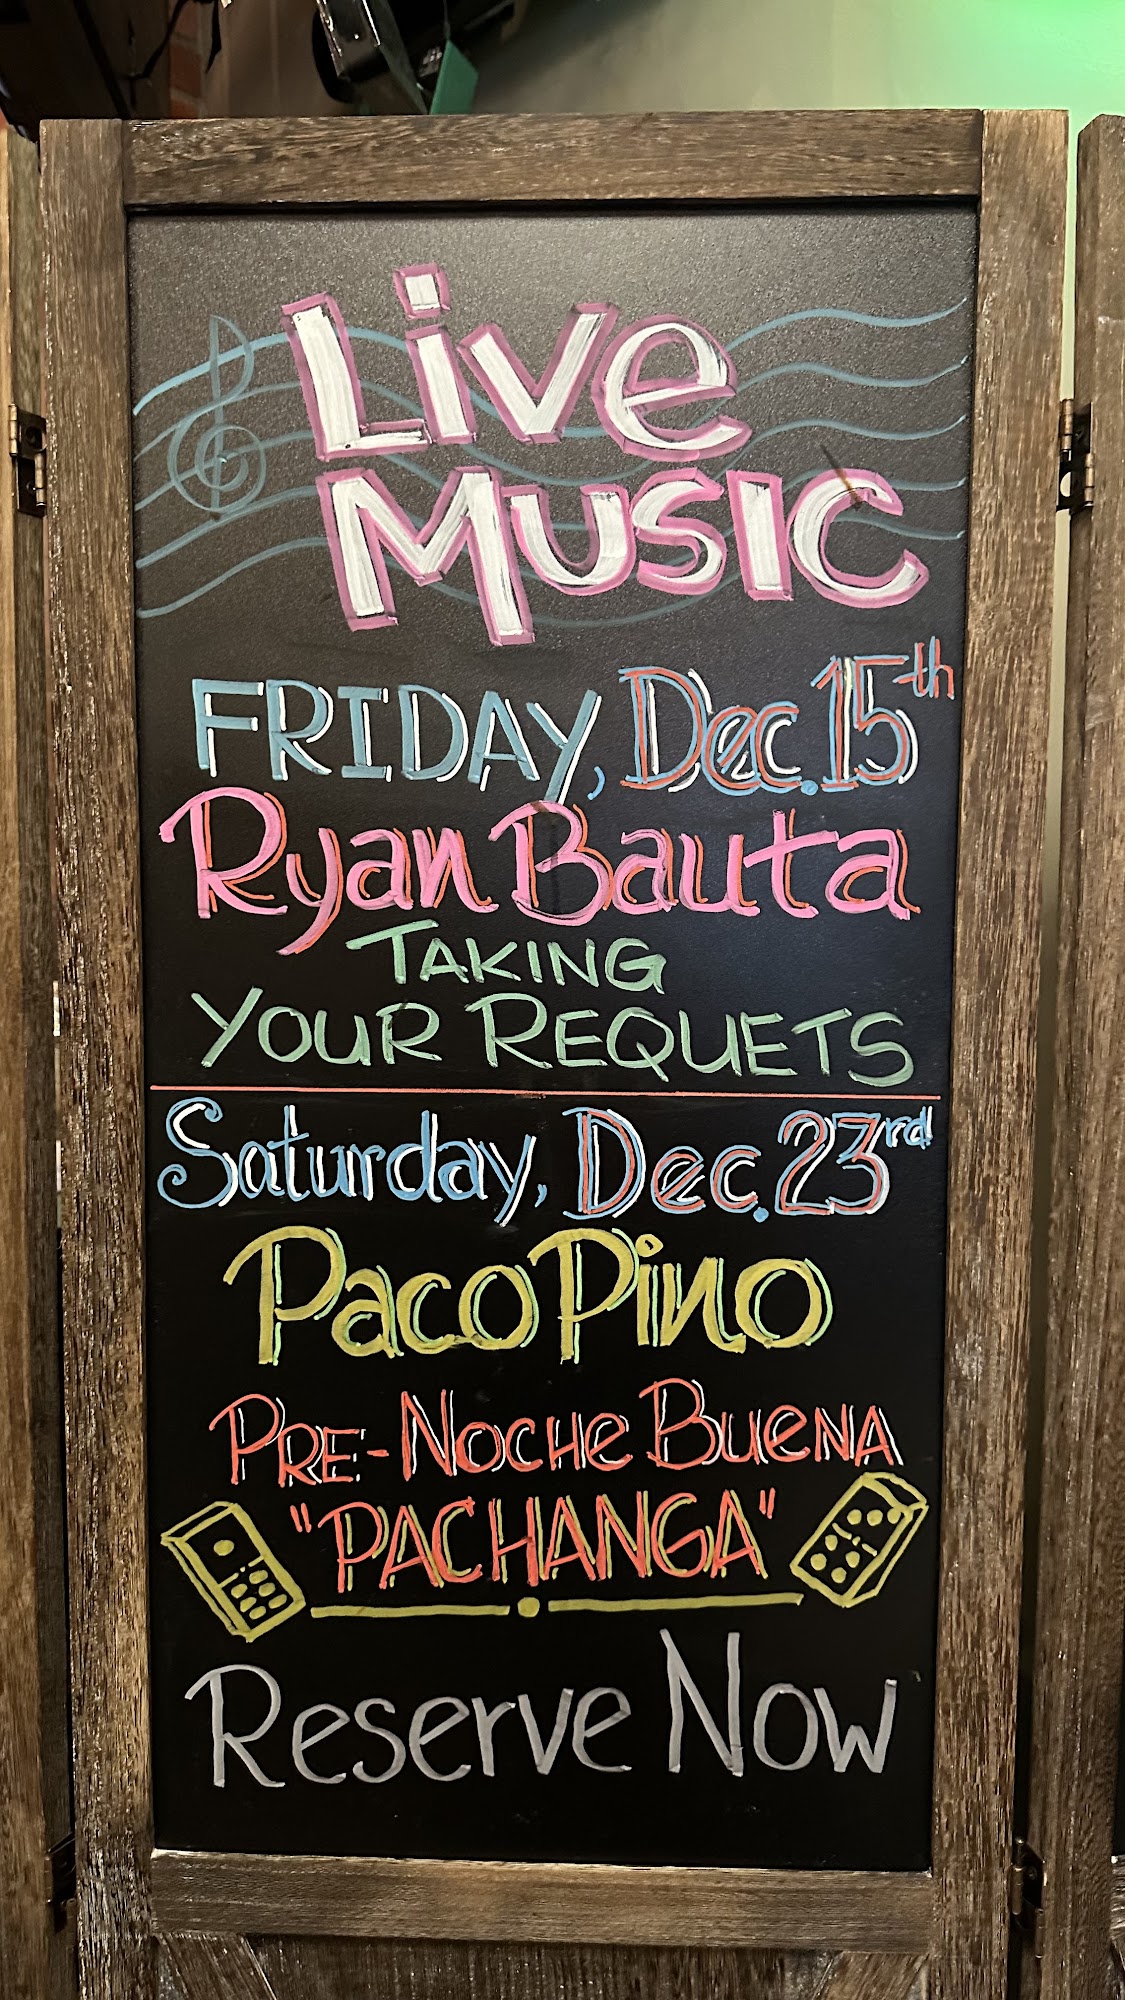 Live
Music
FRIDAY, Dec. 15th
Ryan Bauta
TAKING
YOUR REQUETS
Saturday, Dec. 23rd
Paco Pino
PRE-NOCHE BUENA
"PACHANGA"
Reserve Now